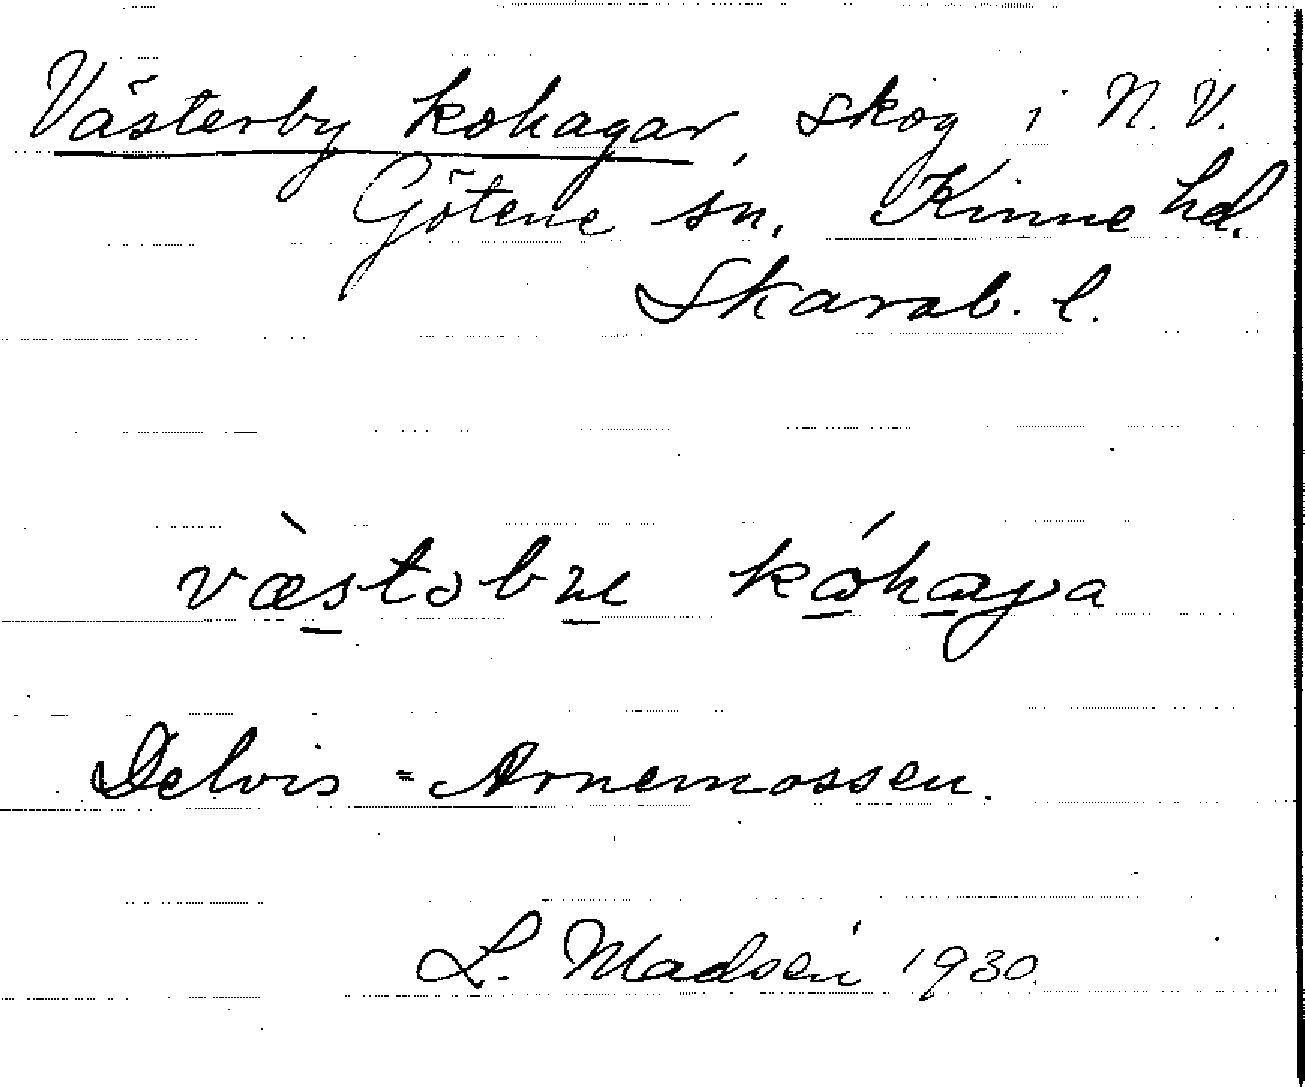 Västerby kohagar, skog i N.V.
Götene sn, Kinne hd.
Skarab. l.
Delvis = Arnemossen.
L. Madsén 1930